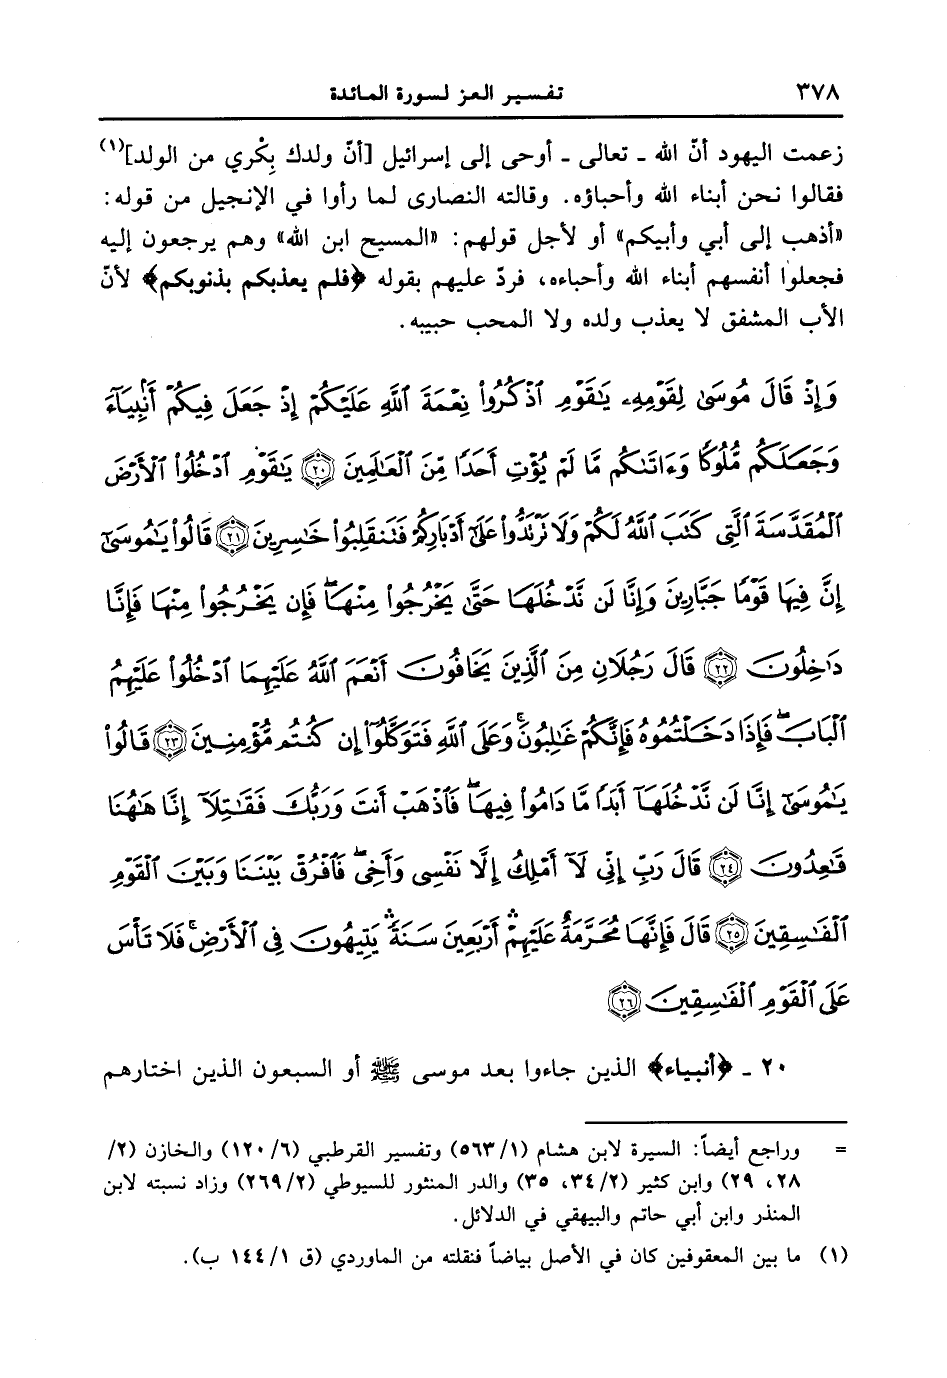 ٣٧٨ تفسير العز لسورة المائدة
زعمت اليهود أنّ الله ـ تعالى ـ أوحى إلى إسرائيل [أنّ ولدك بِكْري من الولد](١)
فقالوا نحن أبناء الله وأحباؤه. وقالته النصارى لما رأوا في الإنجيل من قوله:
«أذهب إلى أبي وأبيكم» أو لأجل قولهم: «المسيح ابن الله» وهم يرجعون إليه
فجعلوا أنفسهم أبناء الله وأحباءه، فردّ عليهم بقوله ﴿فلم يعذبكم بذنوبكم﴾ لأنّ
الأب المشفق لا يعذب ولده ولا المحب حبيبه.
وَإِذْ قَالَ مُوسَىٰ لِقَوْمِهِۦ يَٰقَوْمِ ٱذْكُرُوا۟ نِعْمَةَ ٱللَّهِ عَلَيْكُمْ إِذْ جَعَلَ فِيكُمْ أَنۢبِيَآءَ
وَجَعَلَكُم مُّلُوكًا وَءَاتَىٰكُم مَّا لَمْ يُؤْتِ أَحَدًا مِّنَ ٱلْعَٰلَمِينَ ﴿٢٠﴾ يَٰقَوْمِ ٱدْخُلُوا۟ ٱلْأَرْضَ
ٱلْمُقَدَّسَةَ ٱلَّتِى كَتَبَ ٱللَّهُ لَكُمْ وَلَا تَرْتَدُّوا۟ عَلَىٰٓ أَدْبَارِكُمْ فَتَنقَلِبُوا۟ خَٰسِرِينَ ﴿٢١﴾ قَالُوا۟ يَٰمُوسَىٰٓ
إِنَّ فِيهَا قَوْمًا جَبَّارِينَ وَإِنَّا لَن نَّدْخُلَهَا حَتَّىٰ يَخْرُجُوا۟ مِنْهَا ۖ فَإِن يَخْرُجُوا۟ مِنْهَا فَإِنَّا
دَٰخِلُونَ ﴿٢٢﴾ قَالَ رَجُلَانِ مِنَ ٱلَّذِينَ يَخَافُونَ أَنْعَمَ ٱللَّهُ عَلَيْهِمَا ٱدْخُلُوا۟ عَلَيْهِمُ
ٱلْبَابَ ۖ فَإِذَا دَخَلْتُمُوهُ فَإِنَّكُمْ غَٰلِبُونَ ۚ وَعَلَى ٱللَّهِ فَتَوَكَّلُوٓا۟ إِن كُنتُم مُّؤْمِنِينَ ﴿٢٣﴾ قَالُوا۟
يَٰمُوسَىٰٓ إِنَّا لَن نَّدْخُلَهَآ أَبَدًا مَّا دَامُوا۟ فِيهَا ۖ فَٱذْهَبْ أَنتَ وَرَبُّكَ فَقَٰتِلَآ إِنَّا هَٰهُنَا
قَٰعِدُونَ ﴿٢٤﴾ قَالَ رَبِّ إِنِّى لَآ أَمْلِكُ إِلَّا نَفْسِى وَأَخِى ۖ فَٱفْرُقْ بَيْنَنَا وَبَيْنَ ٱلْقَوْمِ
ٱلْفَٰسِقِينَ ﴿٢٥﴾ قَالَ فَإِنَّهَا مُحَرَّمَةٌ عَلَيْهِمْ ۛ أَرْبَعِينَ سَنَةً ۛ يَتِيهُونَ فِى ٱلْأَرْضِ ۚ فَلَا تَأْسَ
عَلَى ٱلْقَوْمِ ٱلْفَٰسِقِينَ ﴿٢٦﴾
٢٠ ـ ﴿أنبياء﴾ الذين جاءوا بعد موسى ﷺ أو السبعون الذين اختارهم
= وراجع أيضاً: السيرة لابن هشام (١/ ٥٦٣) وتفسير القرطبي (٦/ ١٢٠) والخازن (٢/
٢٨، ٢٩) وابن كثير (٢/ ٣٤، ٣٥) والدر المنثور للسيوطي (٢/ ٢٦٩) وزاد نسبته لابن
المنذر وابن أبي حاتم والبيهقي في الدلائل.
(١) ما بين المعقوفين كان في الأصل بياضاً فنقلته من الماوردي (ق ١/ ١٤٤ ب).